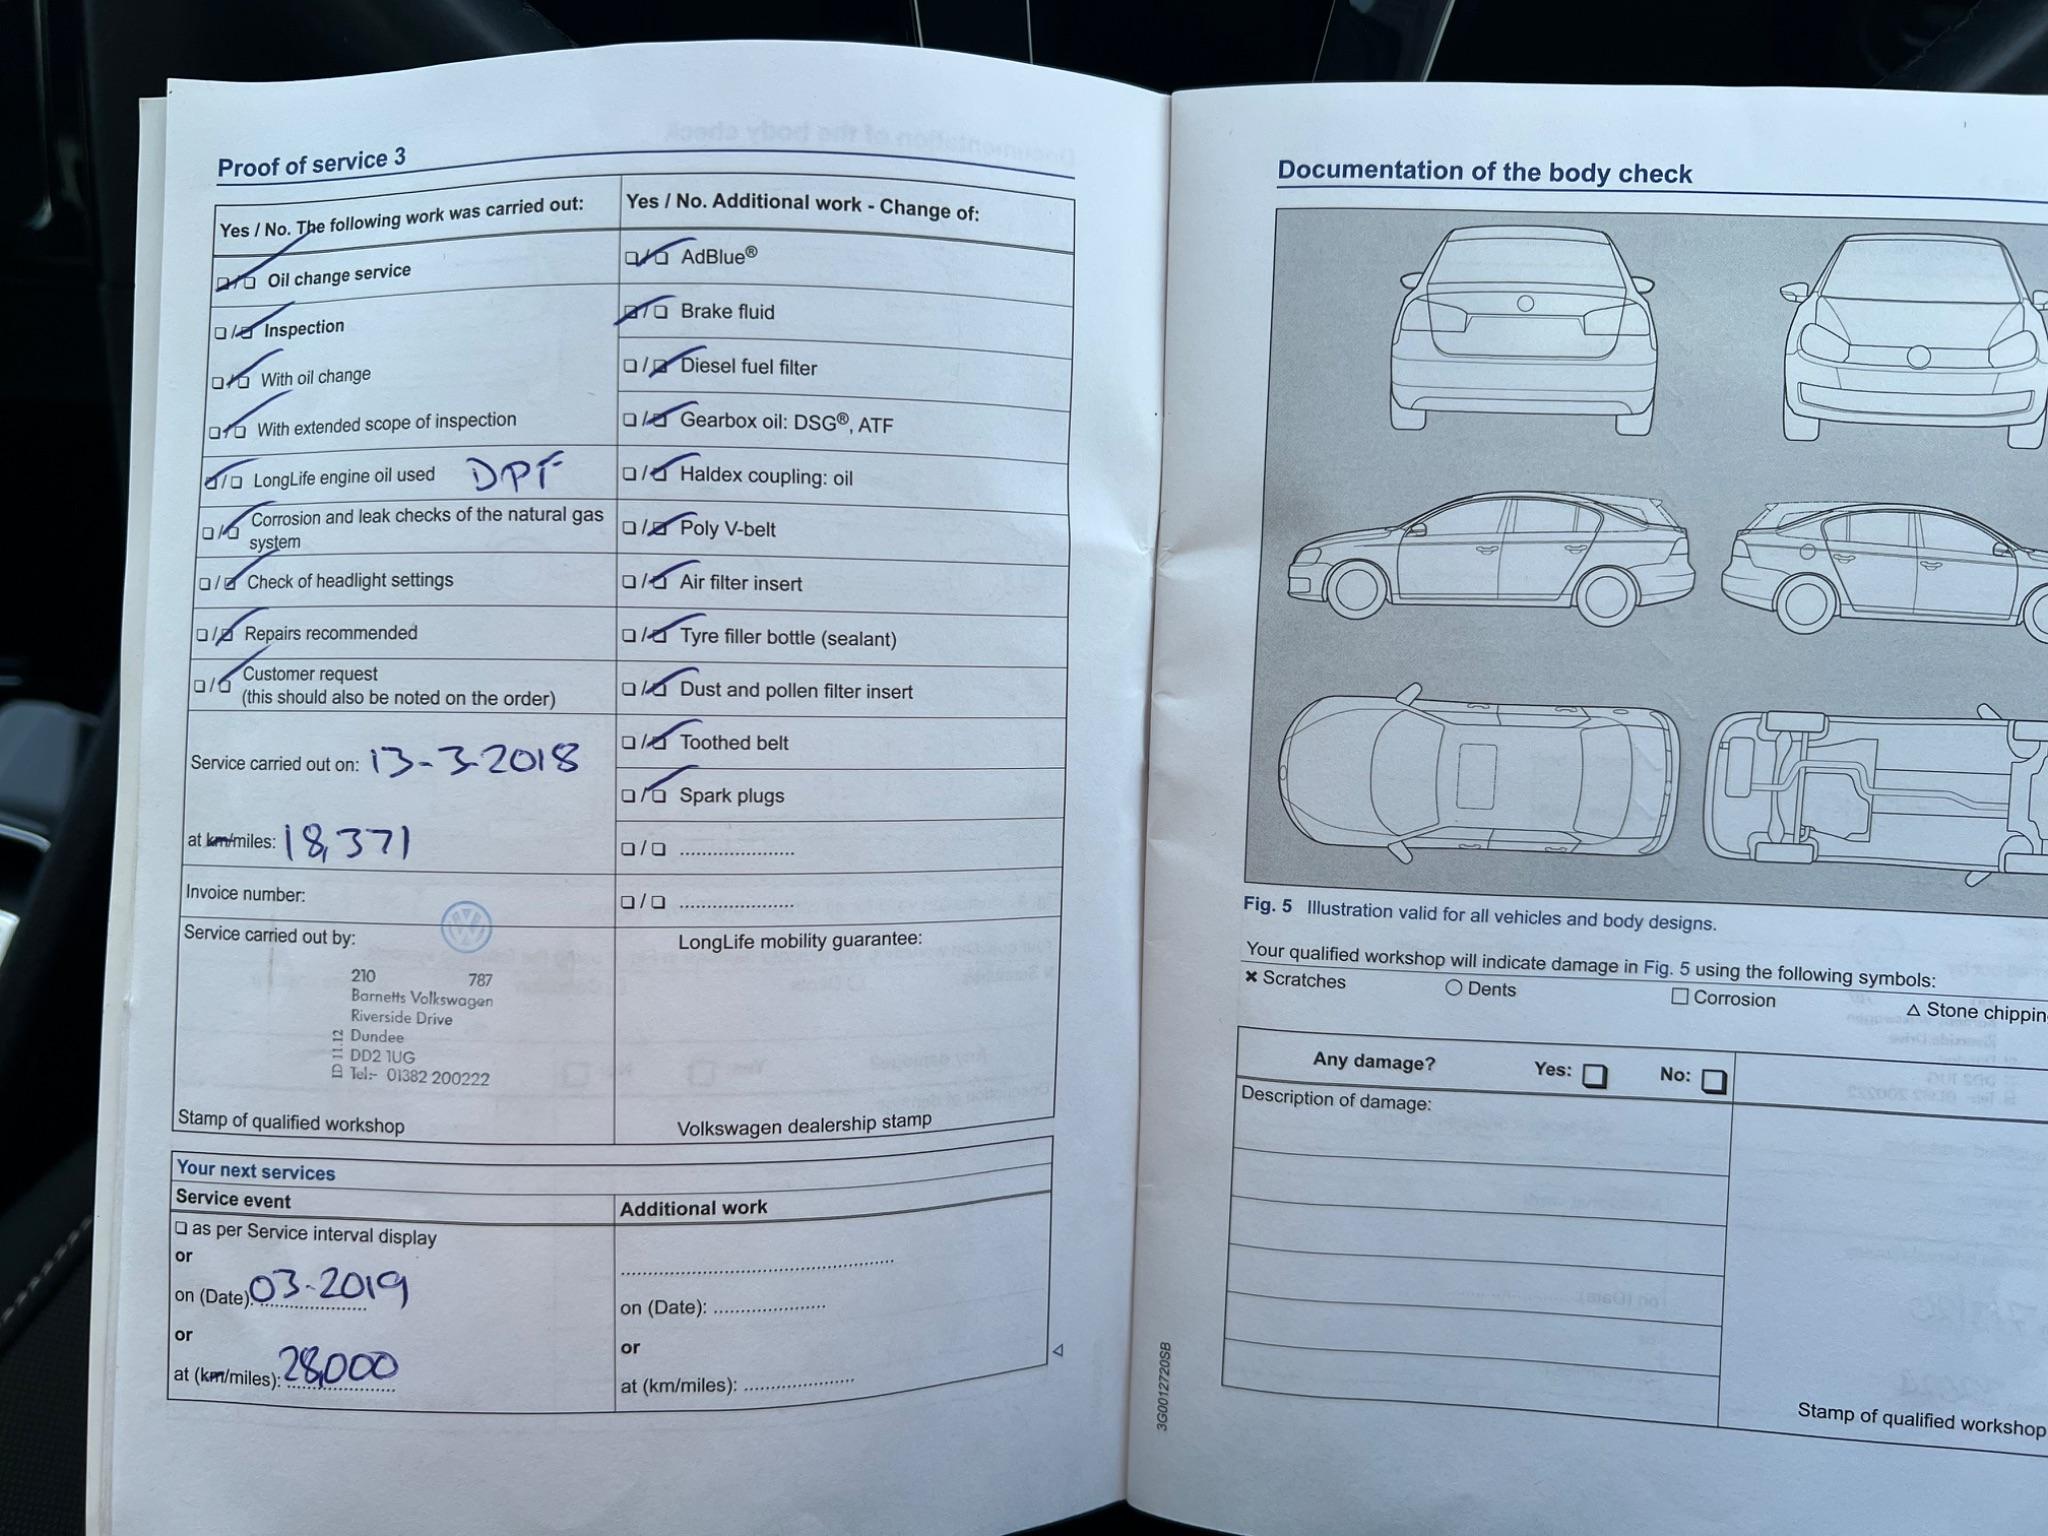 Proof of service 3
Yes / No. The following work was carried out:
Oil change service
Inspection
With oil change
With extended scope of inspection
LongLife engine oil used DPF
Corrosion and leak checks of the natural gas
system
Check of headlight settings
Repairs recommended
Customer request
(this should also be noted on the order)
Service carried out on: 13-3-2018
at km/miles: 18,371
Invoice number:
Service carried out by:
210 787
Barnetts Volkswagen
Riverside Drive
Dundee
DD2 1UG
Tel:- 01382 200222
ID 11.12
Stamp of qualified workshop
Yes / No. Additional work - Change of:
AdBlue®
Brake fluid
Diesel fuel filter
Gearbox oil: DSG®, ATF
Haldex coupling: oil
Poly V-belt
Air filter insert
Tyre filler bottle (sealant)
Dust and pollen filter insert
Toothed belt
Spark plugs
LongLife mobility guarantee:
Volkswagen dealership stamp
Your next services
Service event
as per Service interval display
or
on (Date): 03-2019
or
at (km/miles): 28,000
Additional work
on (Date):
or
at (km/miles):
Documentation of the body check
Fig. 5 Illustration valid for all vehicles and body designs.
Your qualified workshop will indicate damage in Fig. 5 using the following symbols:
Scratches Dents Corrosion Stone chippin
Any damage? Yes: No:
Description of damage:
Stamp of qualified workshop
3G0012720SB